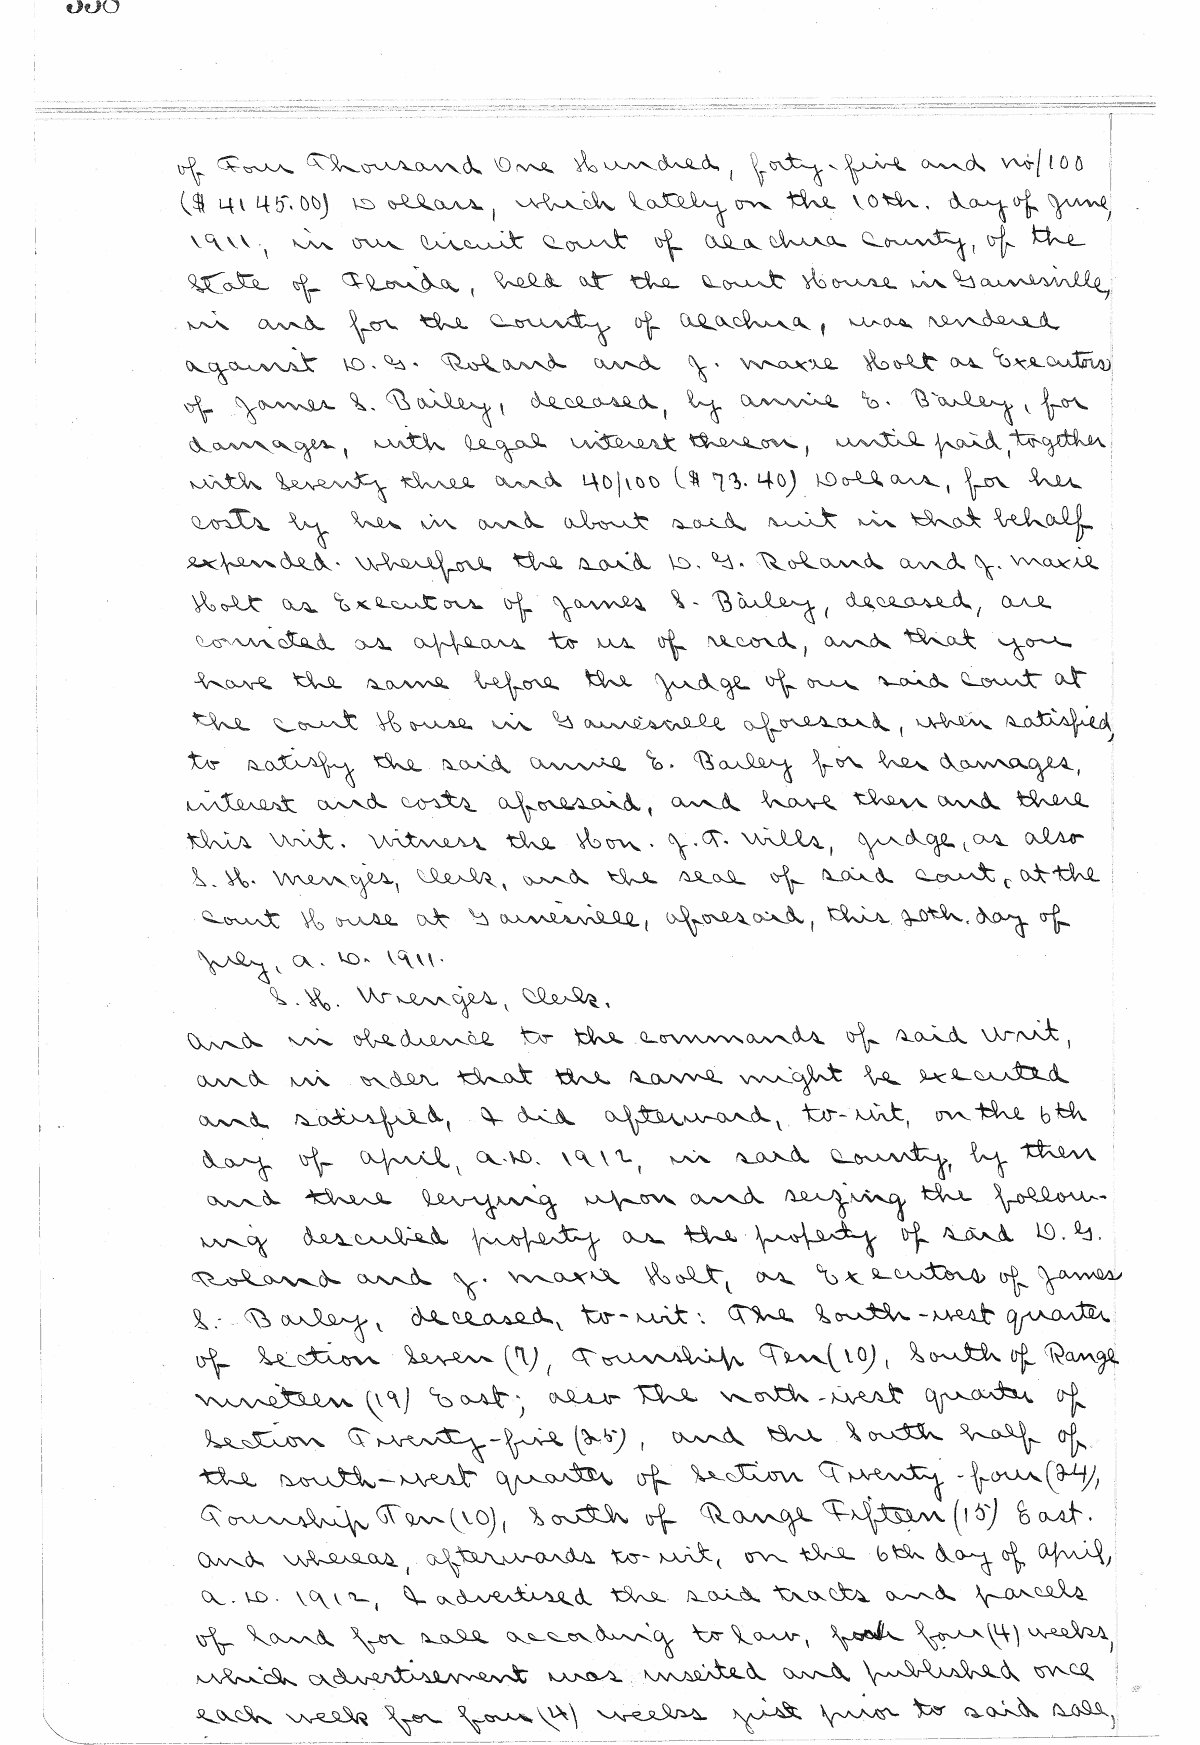 of Four Thousand One Hundred, forty-five and no/100
($4145.00) Dollars, which lately on the 10th. day of June,
1911, in our circuit court of Alachua County, of the
State of Florida, held at the Court House in Gainesville,
in and for the county of Alachua, was rendered
against D. G. Roland and J. Maxie Holt as Executors
of James S. Bailey, deceased, by Annie E. Bailey, for
damages, with legal interest thereon, until paid, together
with Seventy three and 40/100 ($73.40) Dollars, for her
costs by her in and about said suit in that behalf
expended. Wherefore the said D. G. Roland and J. Maxie
Holt as Executors of James S. Bailey, deceased, are
convicted as appears to us of record, and that you
have the same before the Judge of our said Court at
the Court House in Gainesville aforesaid, when satisfied,
to satisfy the said Annie E. Bailey for her damages,
interest and costs aforesaid, and have then and there
this Writ. Witness the Hon. J. T. Wills, Judge, as also
S. H. Wienges, Clerk, and the seal of said court, at the
Court House at Gainesville, aforesaid, this 20th. day of
July, A. D. 1911.
S. H. Wienges, Clerk.
And in obedience to the commands of said writ,
and in order that the same might be executed
and satisfied, I did afterward, to-wit, on the 6th
day of April, A.D. 1912, in said county, by then
and there levying upon and seizing the follow-
ing described property as the property of said D. G.
Roland and J. Maxie Holt, as Executors of James
S. Bailey, deceased, to-wit: The South-west quarter
of Section Seven (7), Township Ten (10), South of Range
nineteen (19) East; also the north-west quarter of
Section Twenty-five (25), and the South half of
the south-west quarter of Section Twenty-four (24),
Township Ten (10), South of Range Fifteen (15) East.
And whereas, afterwards to-wit, on the 6th day of April,
A. D. 1912, I advertised the said tracts and parcels
of land for sale according to law, four (4) weeks,
which advertisement was inserted and published once
each week for four (4) weeks just prior to said sale,